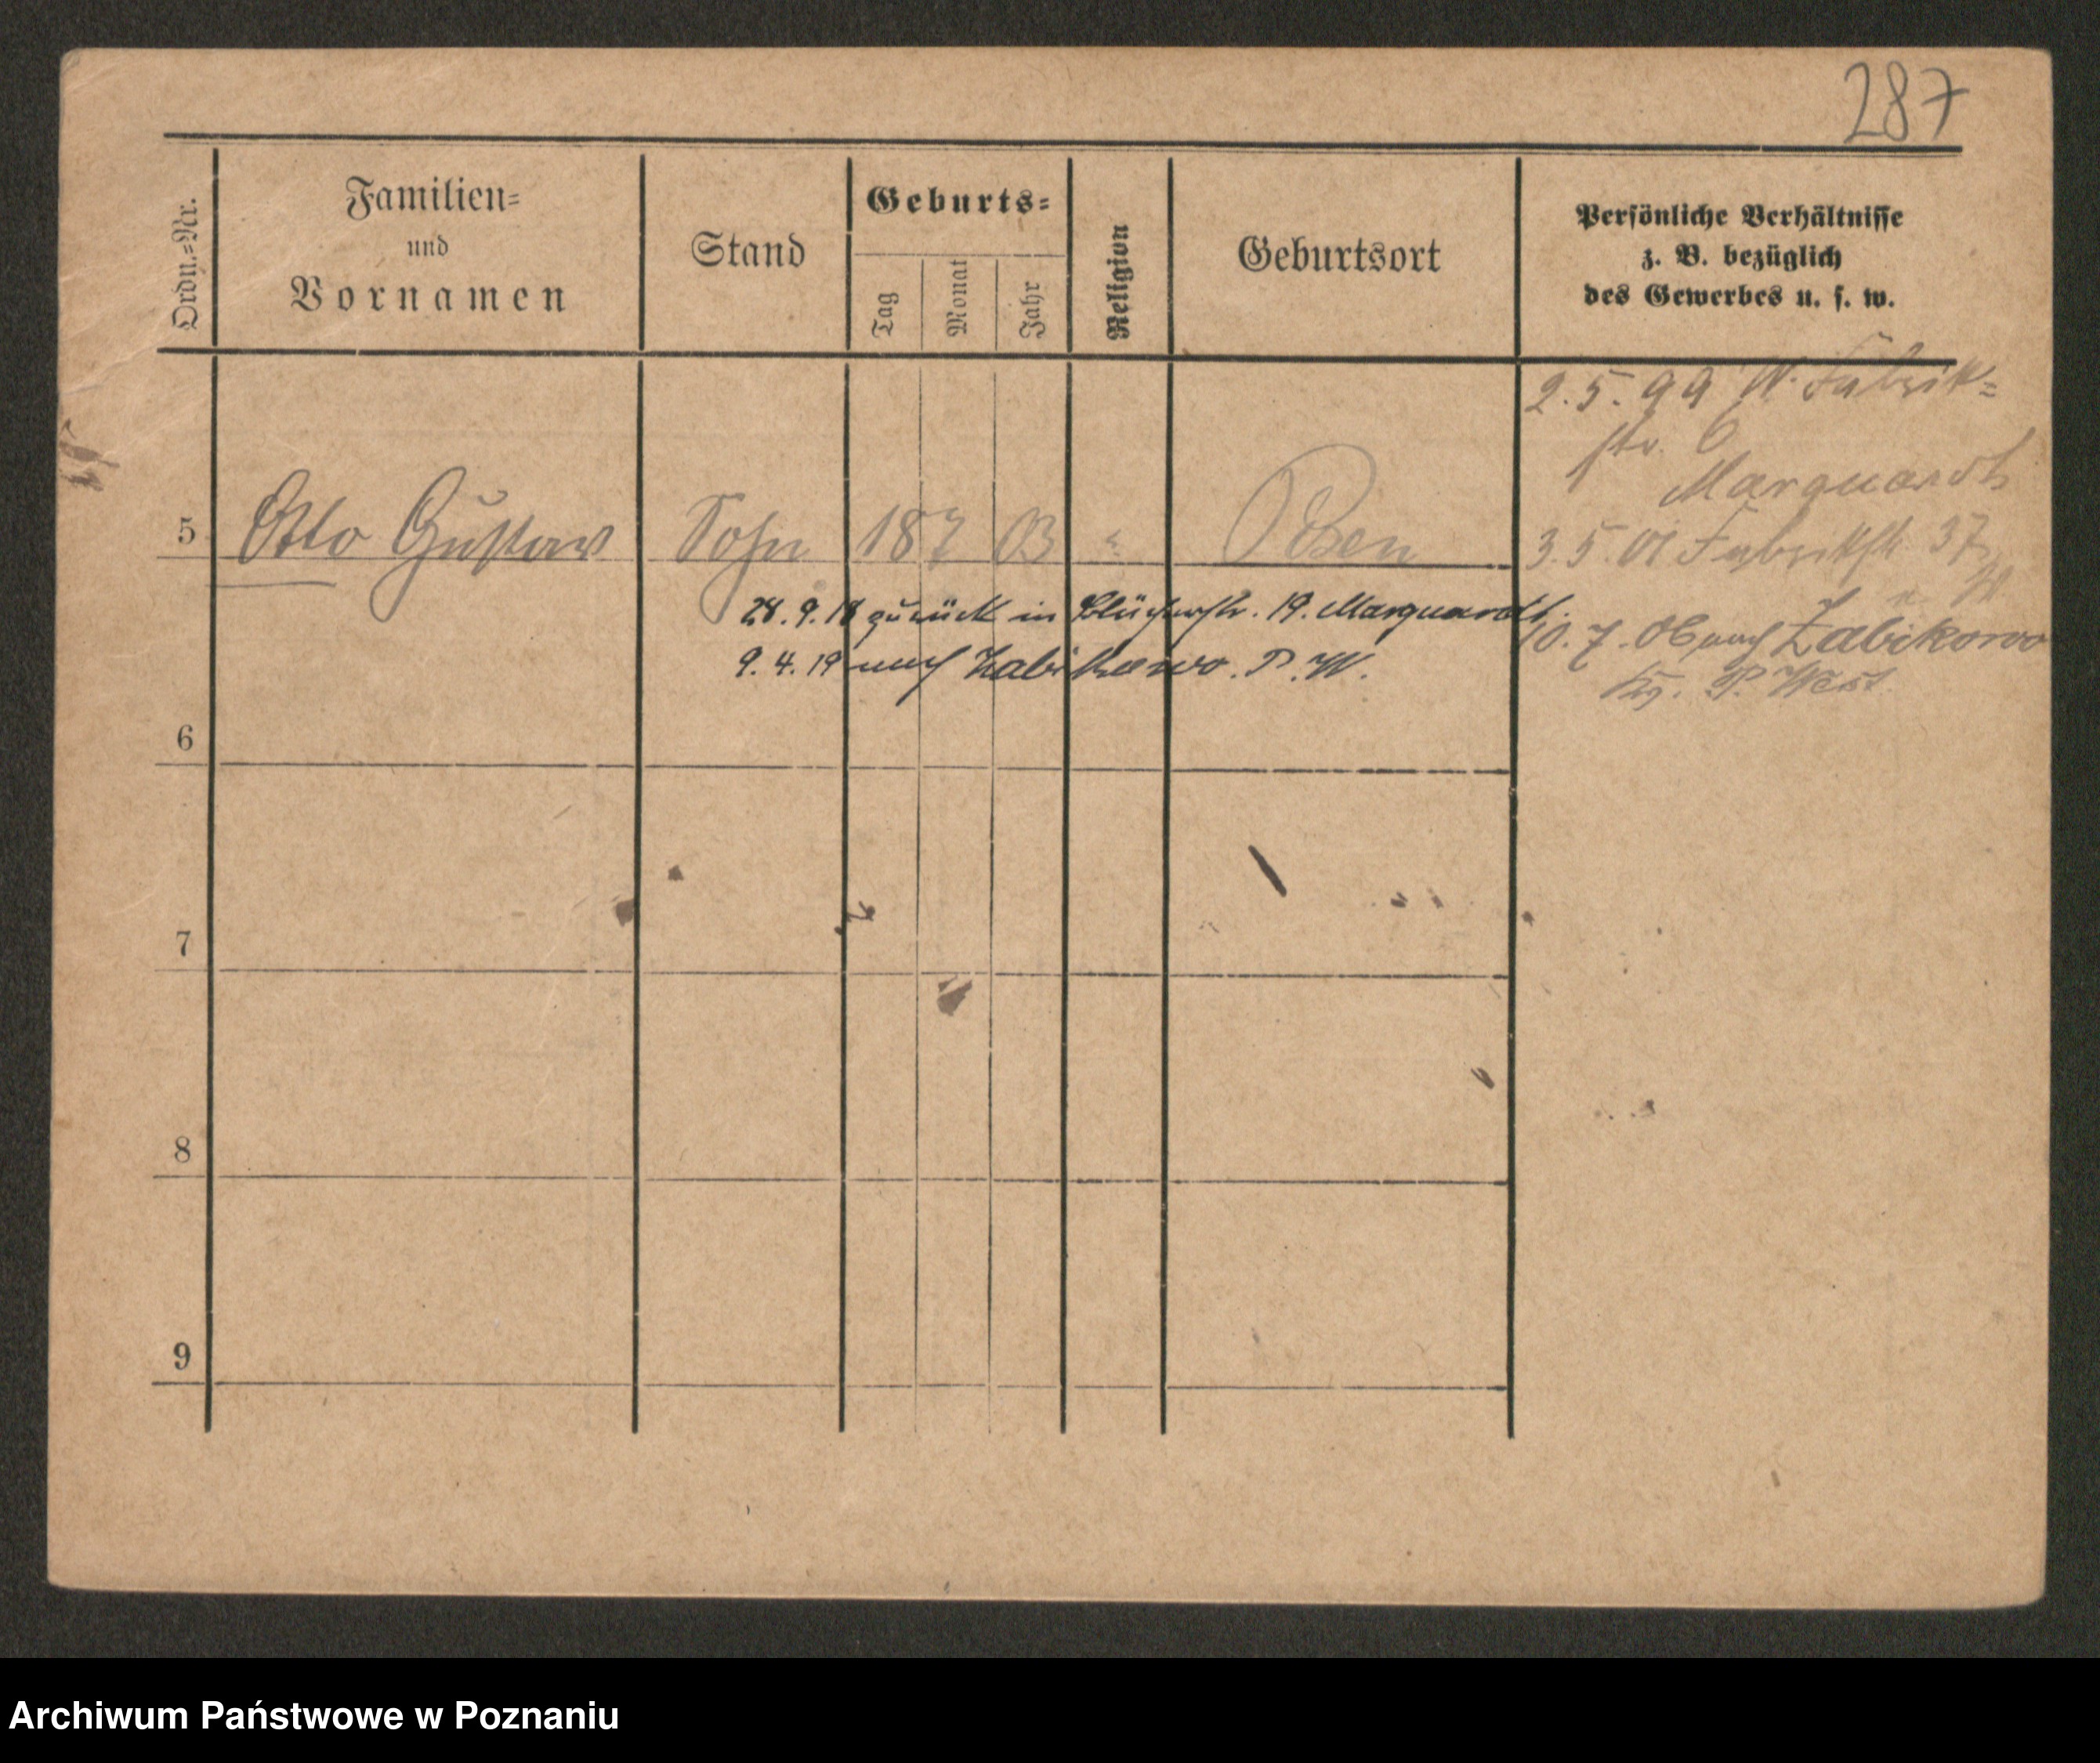 287
Ordn.-Nr.
Familien-
und
Vornamen
Stand
Geburts-
Tag
Monat
Jahr
Religion
Geburtsort
Persönliche Verhältnisse
z. B. bezüglich
des Gewerbes u. s. w.
2.5.99 W. Fabrik-
str. 6
Marquardt
5 Otto Gustav Sohn 18 7 03 " Posen
3.5.01 Fabrikstr. 37
28.9.18 zurück in Blücherstr. 19. Marquardt.
10.7.06 nach Zabikowo
9.4.19 nach Zabikowo. P. W.
Kr. P. West
6
7
8
9
Archiwum Państwowe w Poznaniu